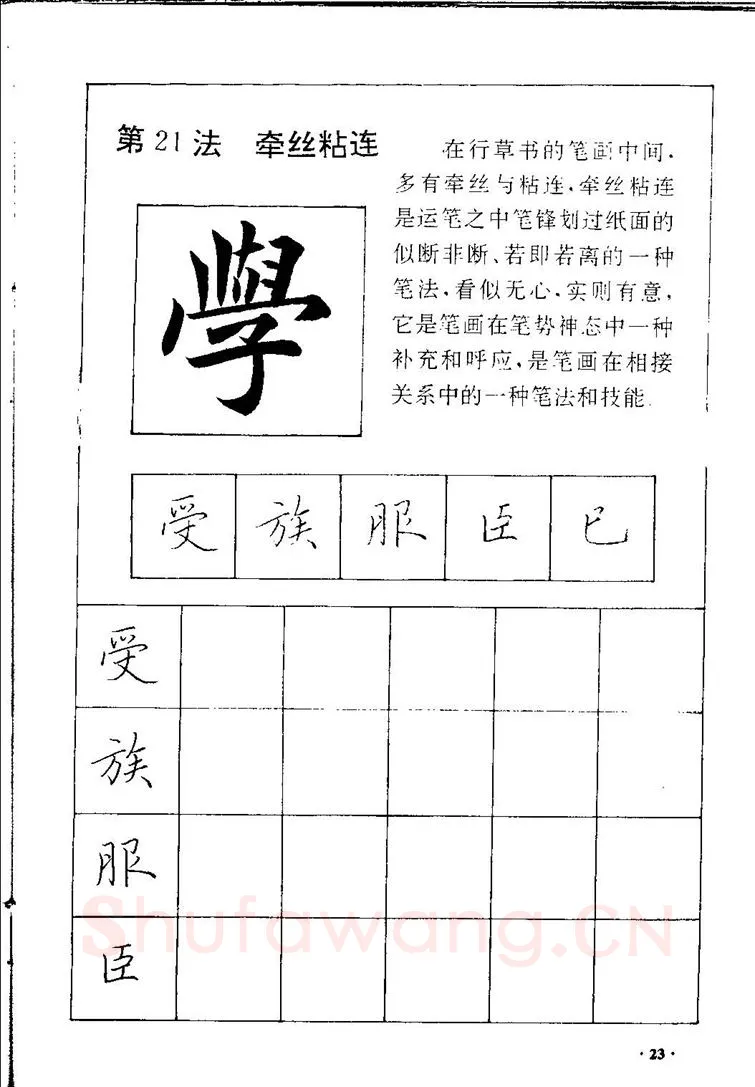 第21法 牵丝粘连
學
在行草书的笔画中间，
多有牵丝与粘连，牵丝粘连
是运笔之中笔锋划过纸面的
似断非断、若即若离的一种
笔法，看似无心，实则有意，
它是笔画在笔势神态中一种
补充和呼应，是笔画在相接
关系中的一种笔法和技能.
受 族 服 臣 已
受
族
服
臣
Shufawang.CN
·23·